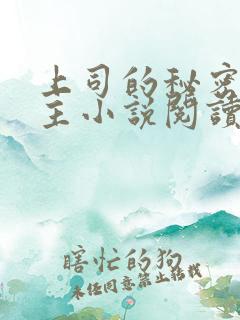 上司的秘密
主小说阅读
瞎忙的狗
未经同意禁止转载